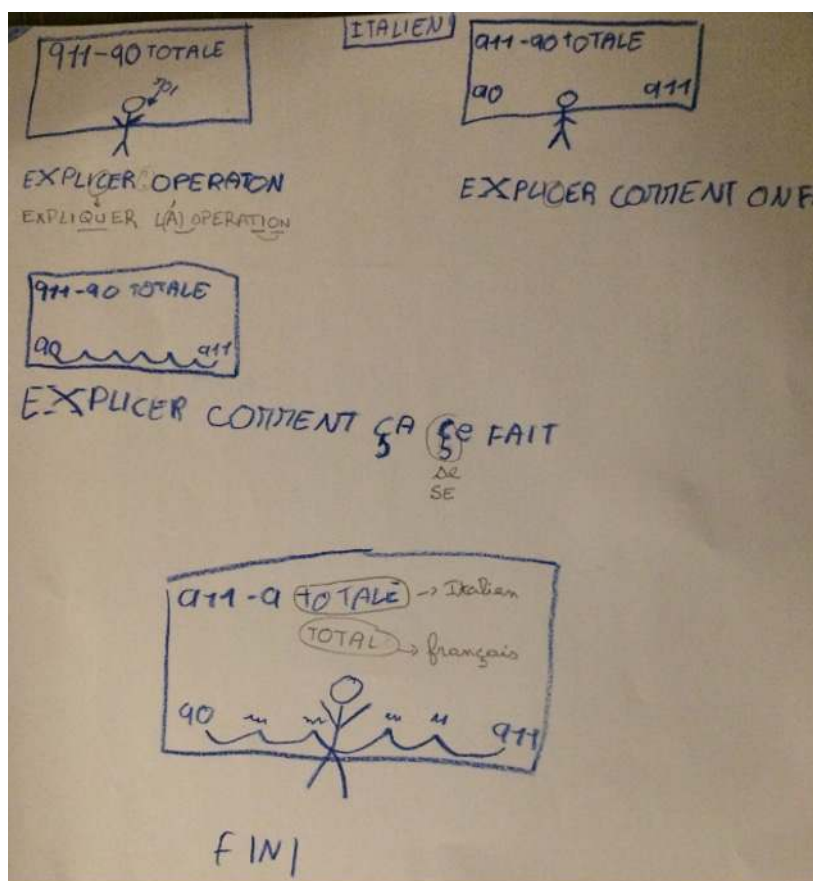 911-90 TOTALE
EXPLICER OPERATON
EXPLIQUER L'(A) OPERATION
ITALIEN
911-90 TOTALE
90 911
EXPLICER COMMENT ON F
911-90 TOTALE
90 911
EXPLICER COMMENT ÇA Çe FAIT
se
SE
911-9 TOTALE → Italien
TOTAL → français
90 911
FINI